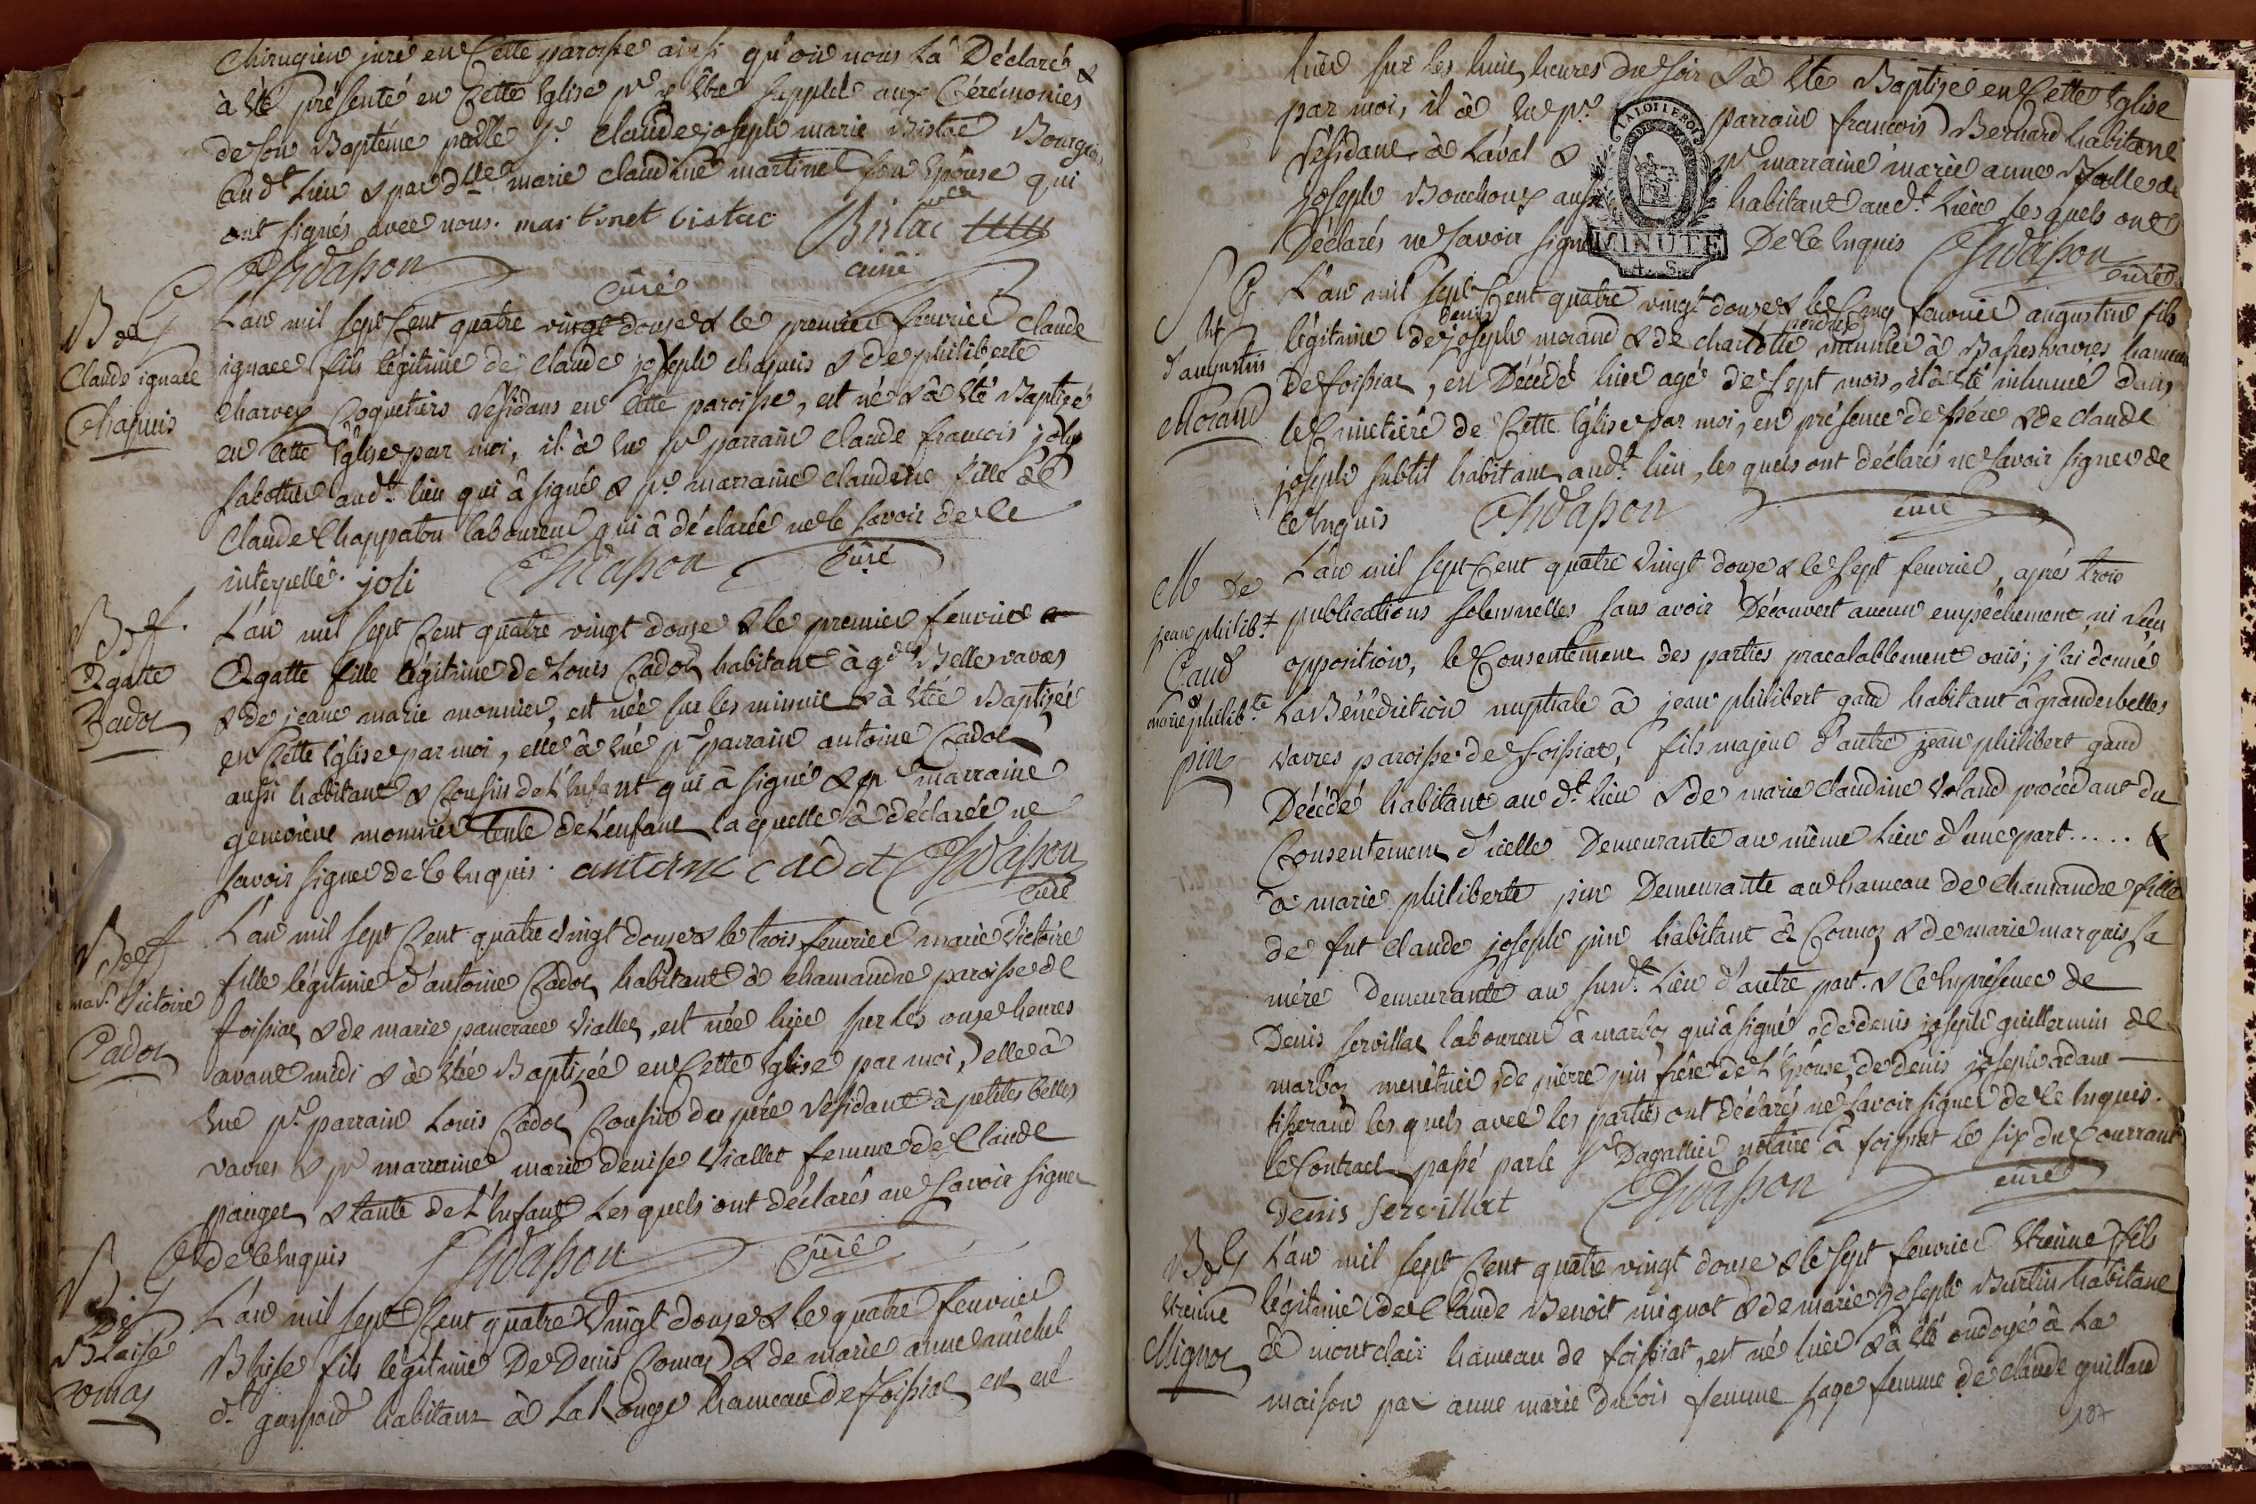 Chirugien juré en Cette paroisse ainsi qu'on nous La Déclaré &
à été présenté en Cette Eglise pr y être supplée aux Cérémonies
de son Baptême par le Sr Claude joseph marie Bistac Bourgeois
audt Lieu & par dlle marie claudine martinet son Epouse qui
ont signés avec nous. martinet bistac Bistac
Chidasson curé ainé
B de
Claude ignace
Chapuis
L'an mil sept Cent quatre vingt douze & le premier fevrier Claude
ignace fils légitime de claude joseph chapuis & de philiberte
Charvey Coquetiers résidans en cette paroisse, est né & à été Baptisé
en cette Eglise par moi, il à eu pr parrain Claude francois joly
sabottier audt lieu qui à signé & pr marraine claudine fille de
Claude Chappaton laboureur qui à déclarée ne le savoir de ce
interpellé. joli Chidasson Curé
B. f.
Agatte
Cadot
L'an mil sept Cent quatre vingt douze & le premier fevrier
Agatte fille légitime de Louis Cadot habitant à gdes Bellesvavres
& de jeane marie monnier, est née sur les minuit & à étée Baptisée
en Cette Eglise par moi, elle à eue pr parrain antoine Cadot
aussi habitant & Cousin de L'Enfant qui à signé & pr marraine
genevieve monnier tente de L'enfant laquelle à déclarée ne
savoir signer de ce Enquis. antoine cadot Chidasson
Curé
B de f
mar. Victoire
Cadot
L'an mil sept Cent quatre vingt douze & le trois fevrier marie Victoire
fille légitime d'antoine Cadot habitant à chamandre paroisse de
foissiat & de marie pancrace Viallet, est née hier sur les onze heures
avant midi & à étée Baptisée en Cette Eglise par moi, elle à
eue pr parrain Louis Cadot Cousin du pére résidant à petites belles
vavres & pr marraine marie denise Viallet femme de Claude
pauget & tante de L'Enfant Les quels ont déclarés ne savoir signer
de ce Enquis Chidasson Curé
B
de
Blaise
Comas
L'an mil sept Cent quatre vingt douze & le quatre fevrier
Blaise fils légitime De Denis Comas & de marie anne michel
dt gaspard habitans à La Rouge hameau de foissiat est né
hier sur les huit heures du soir & à été Baptisé en Cette Eglise
par moi, il à eu pr parrain francois Bernard habitant
résidant à Laval & pr marraine marie anne fille de
joseph Bouchoux aussi habitant audt Lieu les quels ont
Déclarés ne savoir signer De ce Enquis Chidasson
curé
LA LOI LE ROI
MINUTE
4. S.
S G
nt
d'augustin
Morand
L'an mil sept Cent quatre vingt douze & le Cinq fevrier augustin fils
légitime de denis joseph morand & de charlotte perdrix munier à Bassesvavres hameau
de foissiat, est Décédé hier agé de sept mois, il à été inhumé dans
le Cimetiére de Cette Eglise par moi, en présence de pére & de claude
joseph subtil habitant audt lieu, les quels ont déclarés ne savoir signer de
ce Enquis Chidasson curé
M de
jean philibt
Gaud
&
marie philibte
pin
L'an mil sept Cent quatre vingt douze & le sept fevrier, aprés trois
publications solemnelles sans avoir Découvert aucun empêchement, ni reçu
opposition, le Consentement des parties praealablement ouis; j'ai donné
La Bénédiction nuptiale à jean philibert gaud habitant à grandesbelles
vavres paroisse de foissiat, fils majeur d'autre jean philibert gaud
Décédé habitant au dt lieu & de marie claudine Voland procédant du
Consentement d'icelle Demeurante au même Lieu d'une part..... &
à marie philiberte pin Demeurante au hameau de chamandre fille
de fut claude joseph pin habitant à Cormoz & de marie marquis sa
mére Demeurante au susdt Lieu d'autre part. & Ce En présence de
Denis servillat laboureur à marboz qui à signé, de denis joseph guillermin de
marboz menétrier, de pierre pin frére de L'Epouse, de denis joseph adam
tisserand les quels avec les parties ont déclarés ne savoir signer de ce Enquis.
le Contract passé par le Sr Dagallier notaire à foissiat le six du Courrant
Denis servillat Chidasson curé
B de
Etienne
Mignot
L'an mil sept Cent quatre vingt douze & le sept fevrier Etienne fils
légitime de Claude Benoit mignot & de marie joseph Burtin habitans
à montclair hameau de foissiat, est né hier & à été ondoyé à La
maison par anne marie dubois femme sage femme de claude guillaud
187